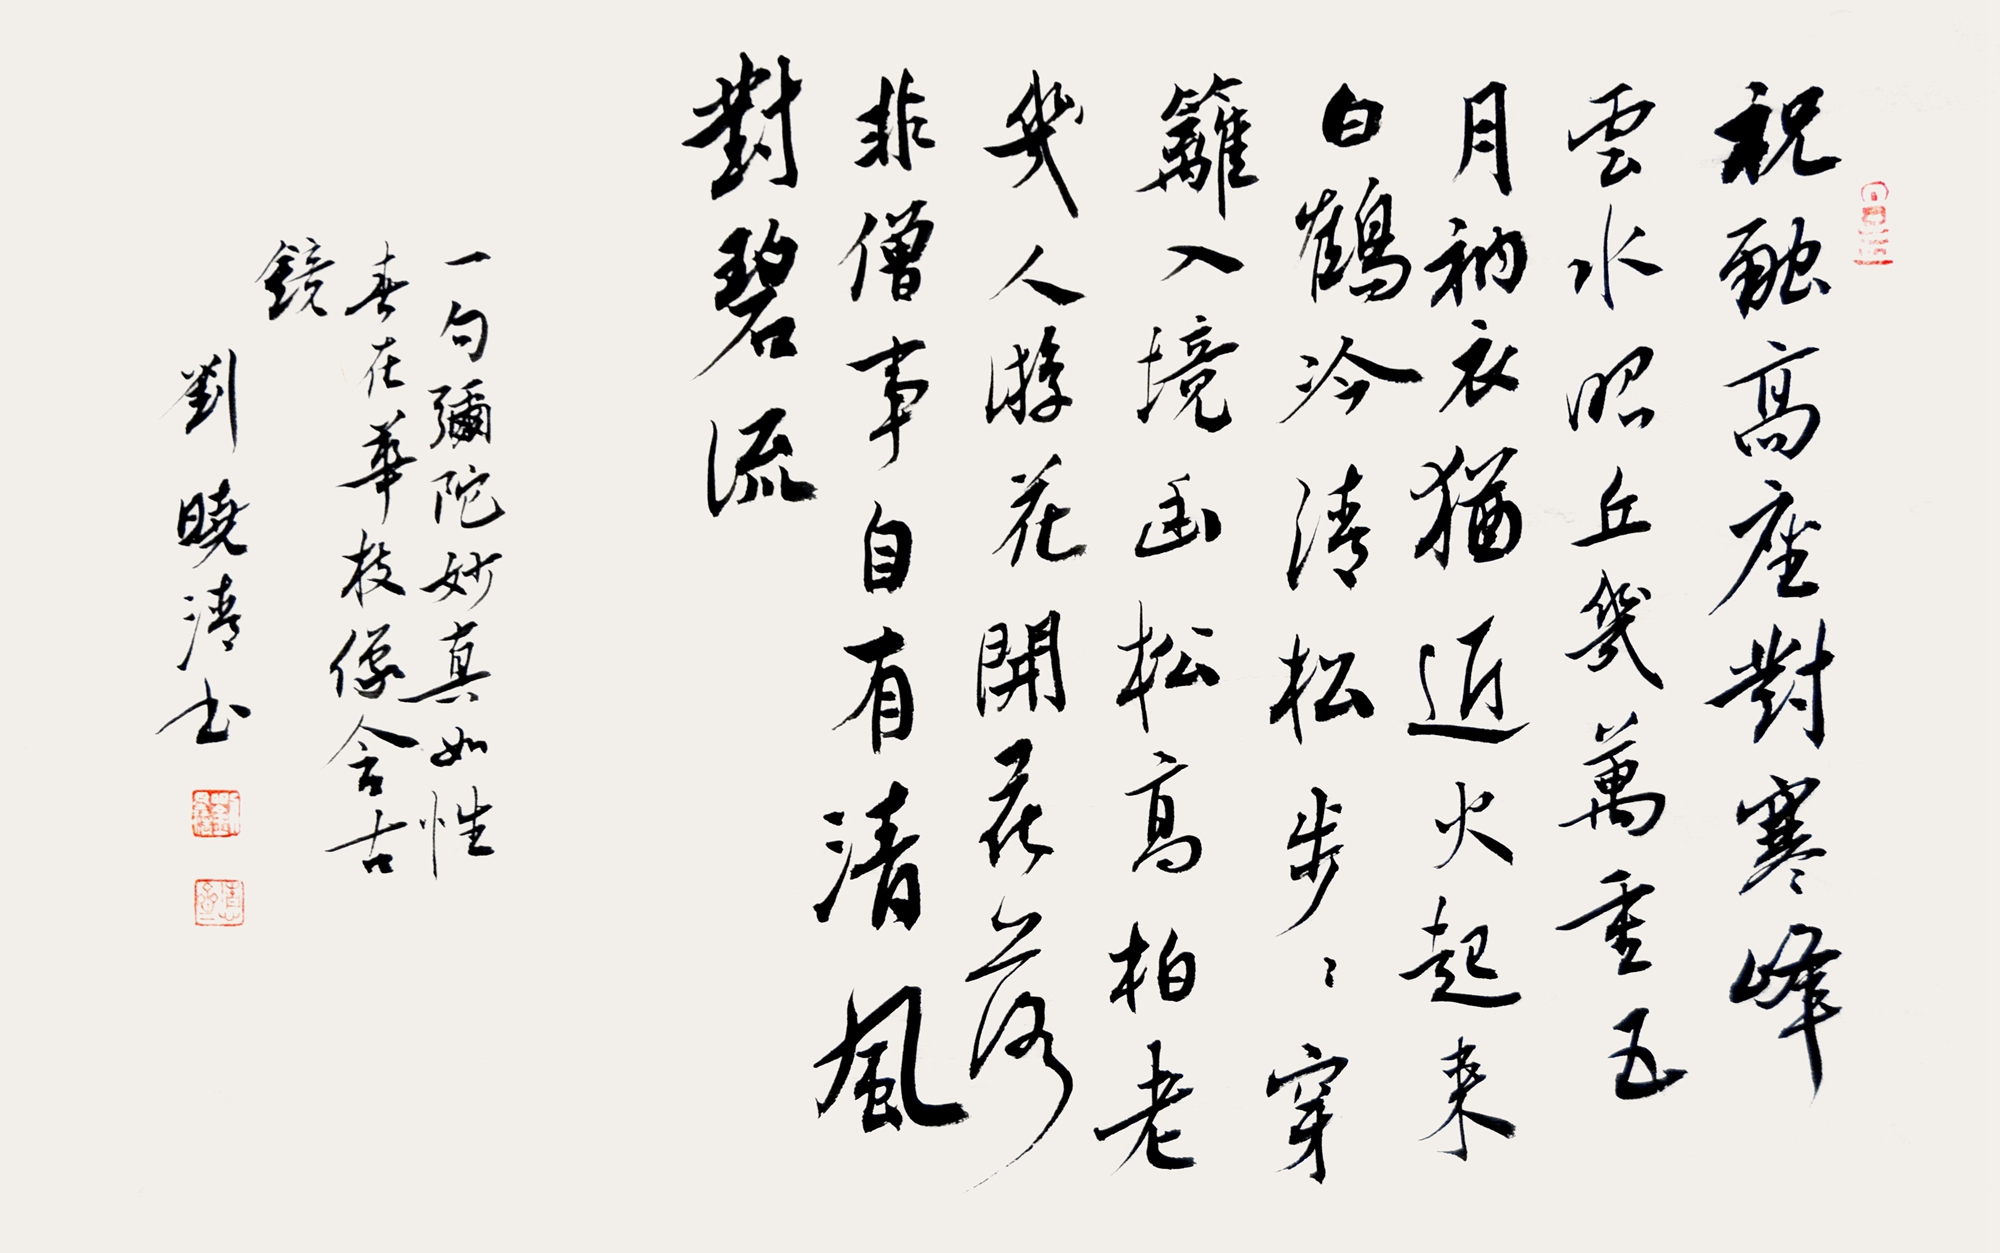 祝融高座對寒峰
雲水昭丘幾萬重五
月衲衣猶近火起来
白鶴冷清松步〻穿
籬入境幽松高柏老
幾人游花開花落
非僧事自有清風
對碧流
一句彌陀妙真如性
春在華枝像含古
鏡
劉曉清书